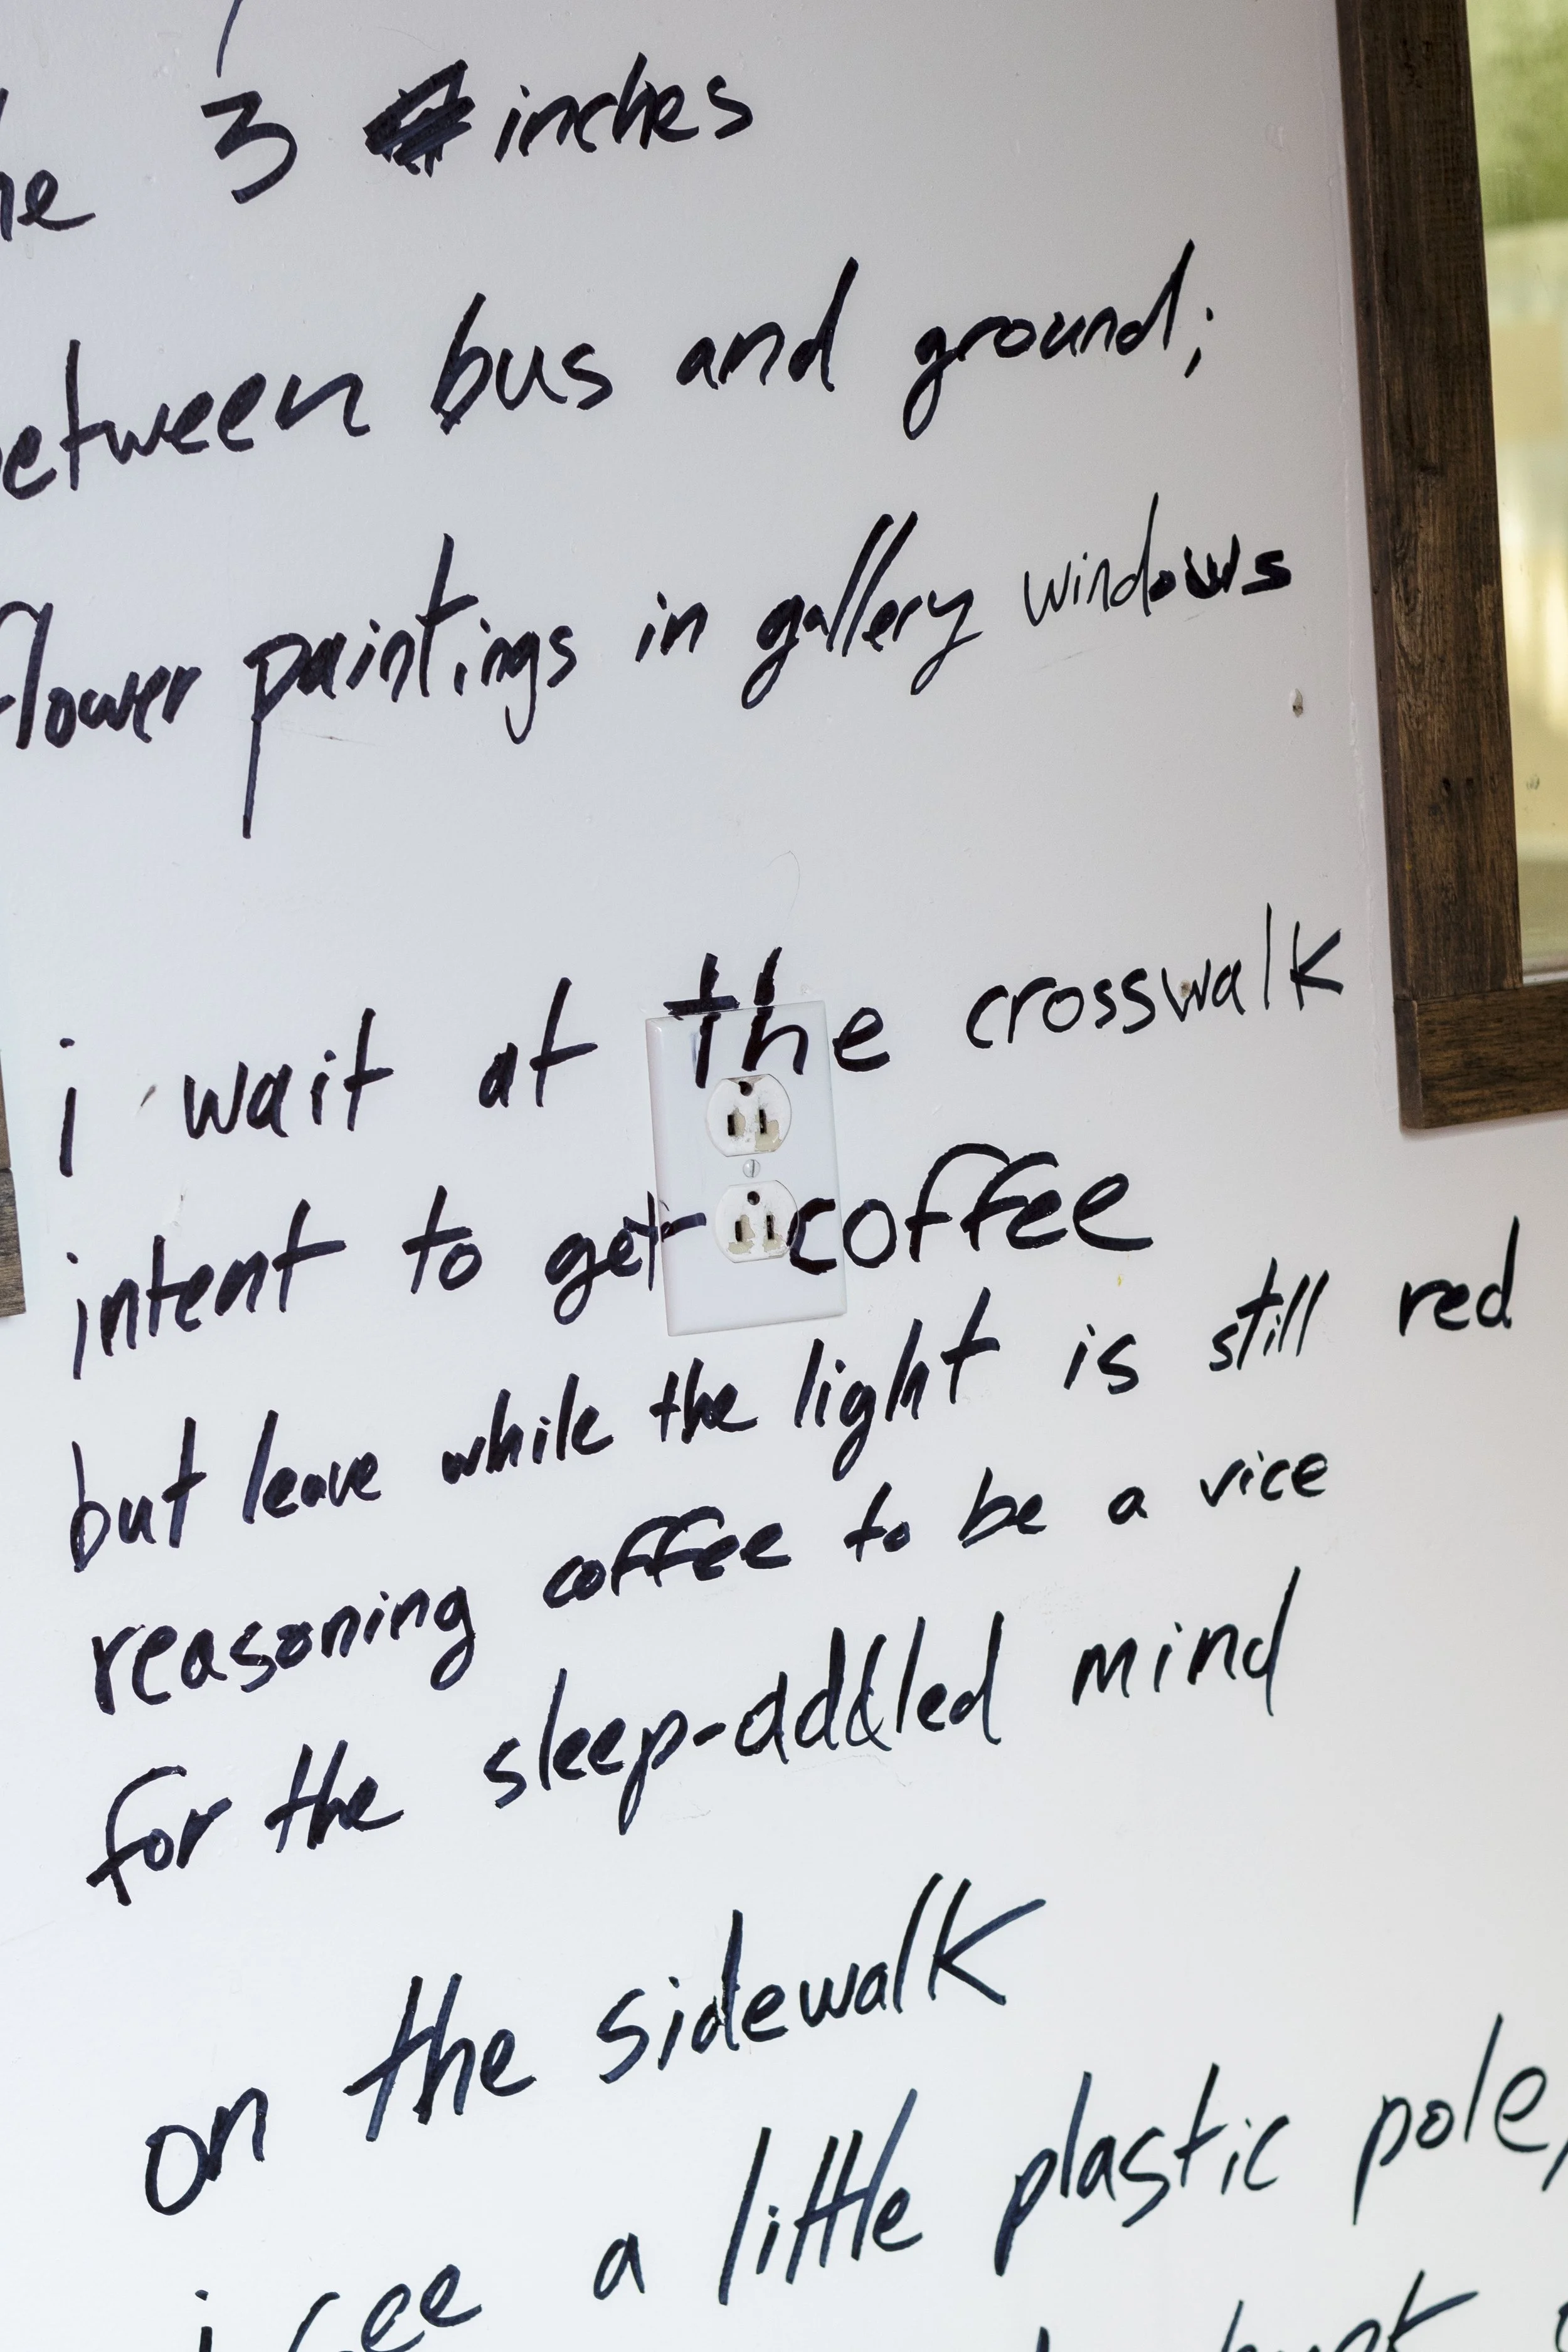 3 inches
between bus and ground;
flower paintings in gallery windows
i wait at the crosswalk
intent to get coffee
but leave while the light is still red
reasoning coffee to be a vice
for the sleep-addled mind
on the sidewalk
i see a little plastic pole,